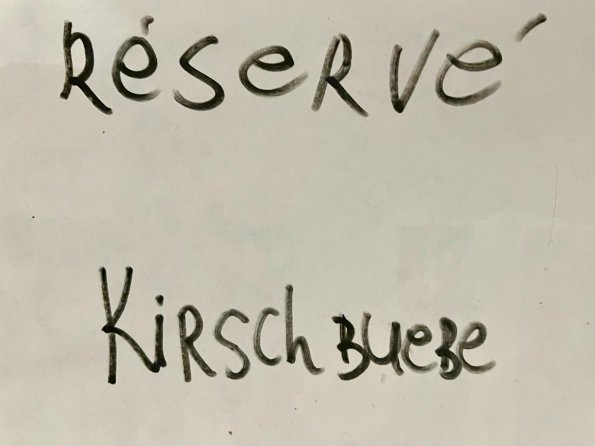 Réservé
Kirschbuebe